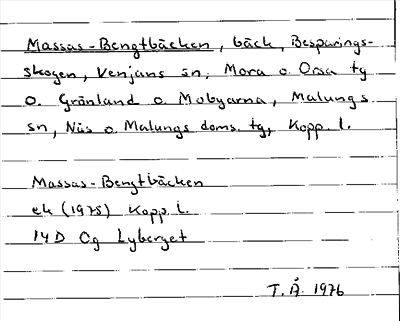 Massas-Bengtbäcken, bäck, Besparings-
skogen, Venjans sn, Mora o. Orsa tg
o. Grönland o. Mobyarna, Malungs
sn, Nås o. Malungs doms. tg, Kopp. l.
Massas-Bengtbäcken
ek (1975) Kopp. l.
14D Og Lyberget
T. Å. 1976